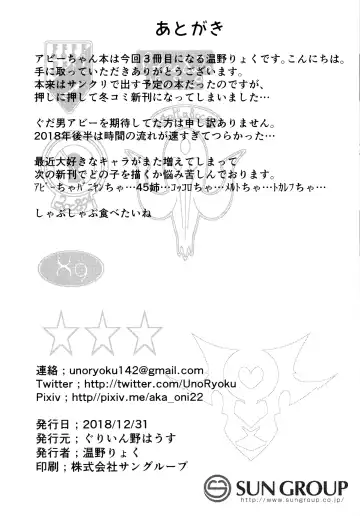 あとがき
アビーちゃん本は今回３冊目になる温野りょくです。こんにちは。
手に取っていただきありがとうございます。
本来はサンクリで出す予定の本だったのですが、
押しに押して冬コミ新刊になってしまいました…
ぐだ男アビーを期待してた方は申し訳ありません。
2018年後半は時間の流れが速すぎてつらかった…
最近大好きなキャラがまた増えてしまって
次の新刊でどの子を描くか悩み苦しんでおります。
ｱﾋﾞｰちゃﾊﾞﾆﾔﾝちゃ…45姉…ｺｯｺﾛちゃ…ﾒﾙﾄちゃ…ﾄｶﾚﾌちゃ…
しゃぶしゃぶ食べたいね
連絡；unoryoku142@gmail.com
Twitter；http://twitter.com/UnoRyoku
Pixiv；http//pixiv.me/aka_oni22
発行日；2018/12/31
発行元；ぐりいん野はうす
発行者；温野りょく
印刷；株式会社サングループ
SUN GROUP
http://www.sungroup.co.jp/